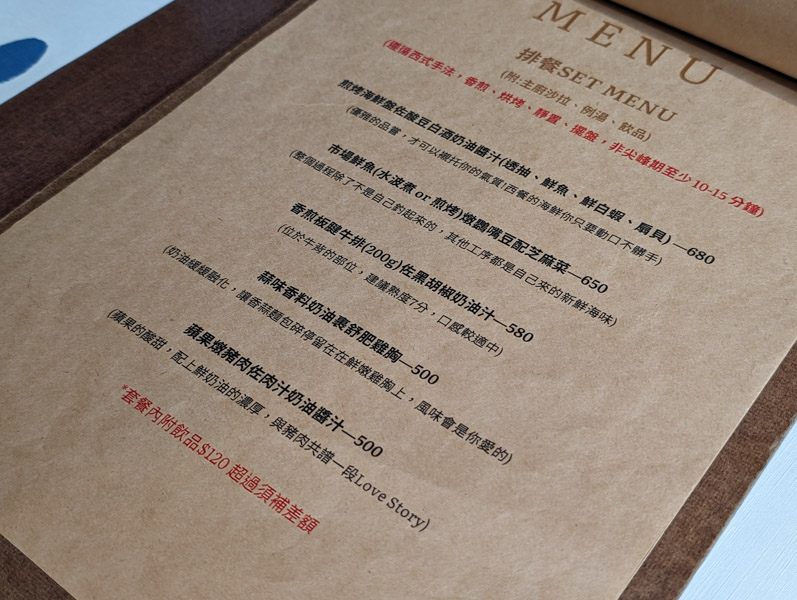 MENU
排餐SET MENU
(附:主廚沙拉、例湯、飲品)
(遵循西式手法，香煎、烘烤、靜置、擺盤，非尖峰期至少10-15分鐘)
煎烤海鮮盤佐酸豆白酒奶油醬汁(透抽、鮮魚、鮮白蝦、扇貝)—680
(優雅的品嘗，才可以襯托你的氣質!西餐的海鮮你只要動口不勝手)
市場鮮魚(水波煮 or 煎烤)燉鷹嘴豆配芝麻菜—650
(整個過程除了不是自己釣起來的，其他工序都是自己來的新鮮海味)
香煎板腱牛排(200g)佐黑胡椒奶油汁—580
(位於牛背的部位，建議熟度7分，口感較適中)
蒜味香料奶油裹舒肥雞胸—500
(奶油緩緩融化，讓香蒜麵包碎停留在在鮮嫩雞胸上，風味會是你愛的)
蘋果燉豬肉佐肉汁奶油醬汁—500
(蘋果的酸甜，配上鮮奶油的濃厚，與豬肉共譜一段Love Story)
*套餐內附飲品$120 超過須補差額